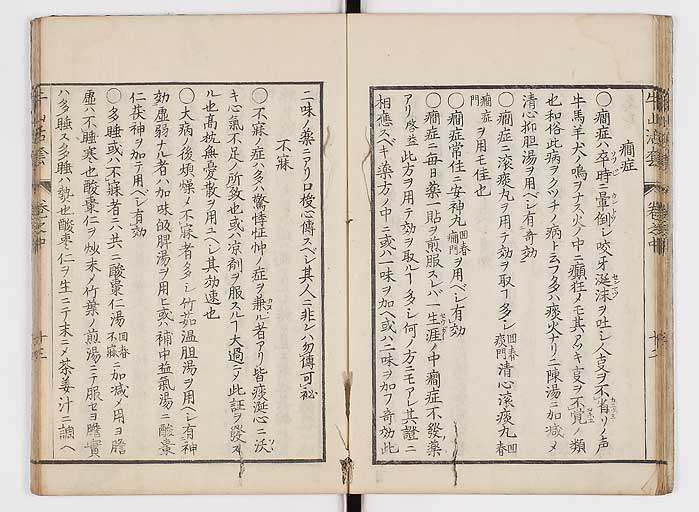 癇症
〇癇症ハ卒時ニ暈倒し咬牙涎沫ヲ吐シ人事ヲ不省リノ声
牛馬羊犬ノ鳴ヲナス火ノ中ニ癲狂ノモ其
也和俗此病ヲクツチノ病ト云フ多ハ痰火ナリ二陳湯ニ加減メ
清心抑胆湯ヲ用ベシ有奇効
〇癇症ニ滚痰丸ヲ用テ効ヲ取ルヿ多シ回春痰門清心滚痰丸回春
癇症門ヲ用モ佳也
〇癇症常住ニ安神丸回春癇門ヲ用ベシ有効
〇癇症ニ毎日薬一貼ヲ煎服スレバ一生涯ノ中癇症不發薬
アリ啓益此方ヲ用テ効ヲ取ルヿ多シ何ノ方ニモアレ其證ニ
相應スベキ薬方ノ中ニ或ハ一味ヲ加ヘ或ハ二味ヲ加フ奇効此
二味ノ薬ニアリ口授心傳スベシ其人ニ非レハ勿傳可秘
不寐
〇不寐ノ症ハ多ハ驚悸怔忡ノ症ヲ兼ル者アリ皆痰涎心ニ沃
キ心氣不足ノ所致也或ハ凉剤ヲ服スルヿ大過ニメ此証ヲ發ス
ル也高枕無憂散ヲ用ユヘシ其効速也
〇大病ノ後煩燥メ不寐者多シ竹茹温胆湯ヲ用ヘシ有神
効虚弱ナル者ハ加味皈脾湯ヲ用ヒ或ハ補中益氣湯ニ酸棗
仁茯神ヲ加テ用ベシ有効
〇多睡或ハ不寐者ニハ共ニ酸棗仁湯回春不寐ニ加減メ用ヨ膽
虚ハ不睡寒也酸棗仁ヲ炒末メ竹葉ノ煎湯ニテ服セヨ膽實
ハ多睡ス多睡ハ熱也酸棗仁ヲ生ニテ末ニメ茶姜汁ニ調ヘ